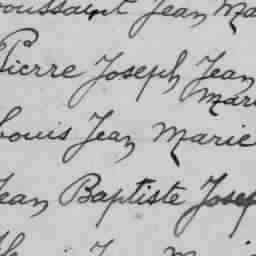 Toussaint Jean Ma
Pierre Joseph Jean
Mari
Louis Jean Marie
Jean Baptiste Josep